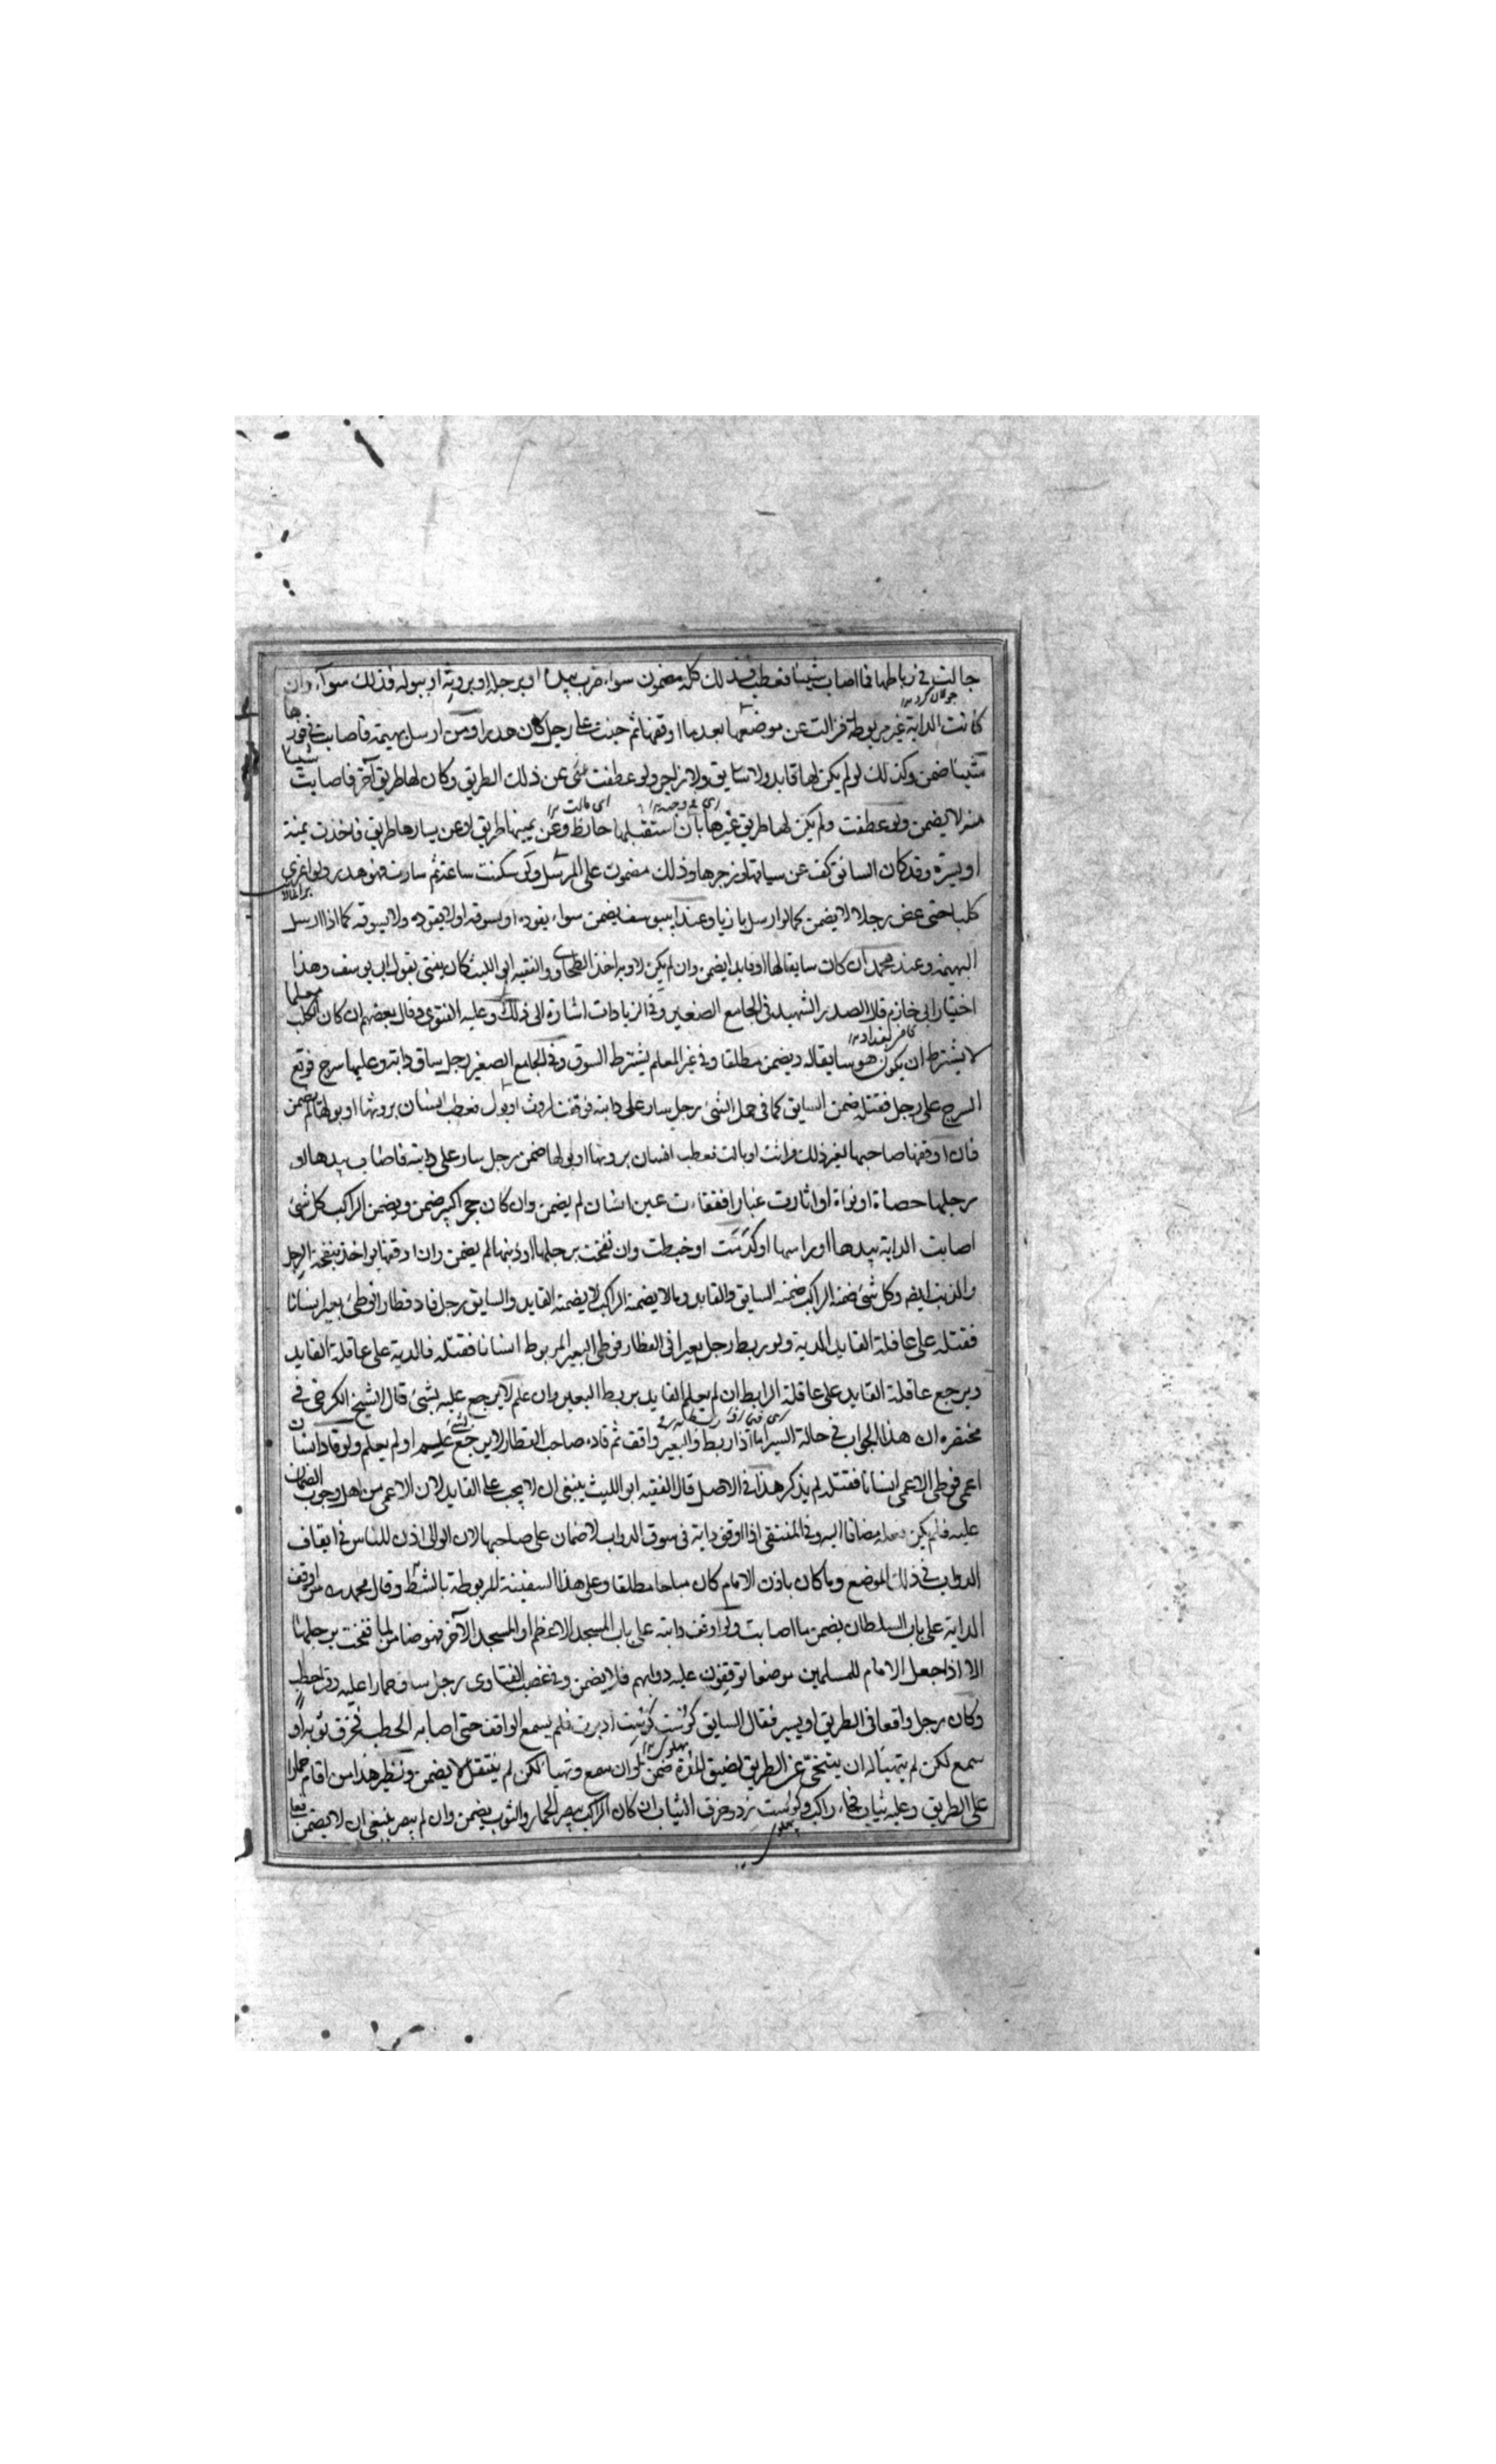 جالت في رباطها فما اصاب شيئا فعطب فذلك كله مضمون سواء ضرب بيدها او برجلها او بروثه او ببوله فذلك سواء وان
كانت الدابة غير مربوطة فزالت عن موضعها بعد ما اوقفها ثم جنت على رجل كان هدرا ومن ارسل بهيمة فاصابت في فورها
شيئا ضمن وكذلك لو لم يكن لها قايد ولا سايق ولا زاجر ولو عطفت شئ عن ذلك الطريق وكان لها طريق آخر فاصابت شيئا
منه لا يضمن ولو عطفت ولم يكن لها طريق غيرها بان استقبلها حائط وعن يمينها طريق او عن يسارها طريق فاخذت يمنة
او يسرة وقد كان السائق كف عن سياقتها وزجرها وذلك مضمون على المرسل ولو سكنت ساعة ثم سارت فهو هدر ولو اغرى
كلبا حتى عض رجلا لا يضمن كما لو ارسل بازيا وعند ابي يوسف يضمن سواء يقوده او يسوقه او لا يقوده ولا يسوقه كما اذا ارسل
البهيمة وعند محمد ان كان سايقا لها او قايدا يضمن وان لم يكن لا وبه اخذ الطحاوي والفقيه ابو الليث كان يفتى بقول ابي يوسف وهذا
اختيار ابي خازم قال الصدر الشهيد في الجامع الصغير وفي الزيادات اشارة الى ذلك وعليه الفتوى وقال بعضهم ان كان الكلب معلما
لا يشترط ان يكون هو سايقا له ويضمن مطلقا وفي غير المعلم يشترط السوق وفي الجامع الصغير رجل ساق دابة وعليها سرج فوقع
السرج على رجل فقتله ضمن السايق كما في حمل الشئ رجل سار على دابته فوقفت لروث او بول فعطب انسان بروثها او بولها لم يضمن
فان اوقفها صاحبها لغير ذلك فراثت او بالت فعطب انسان بروثها او بولها ضمن رجل سار على دابته فاصاب بيدها او
برجلها حصاة او نواة او اثارت غبارا ففقات عين انسان لم يضمن وان كان حجرا كبيرا ضمن ويضمن الراكب كل شئ
اصابت الدابة بيدها او راسها او كدمت او خبطت وان نفخت برجلها او ذنبها لم يضمن وان اوقفها يواخذ بنفخة الرجل
والذنب ايضا وكل شئ ضمنه الراكب ضمنه السايق والقايد وما لا يضمنه الراكب لا يضمنه القايد والسايق رجل قاد قطارا فوطئ بعير انسانا
فقتله على عاقلة القايد الدية ولو ربط رجل بعيرا في القطار فوطئ البعير المربوط انسانا فقتله فالدية على عاقلة القايد
ويرجع عاقلة القايد على عاقلة الرابط ان لم يعلم القايد بربط البعير وان علم لا يرجع عليه بشئ قال الشيخ الكرخى في
مختصره ان هذا الجواب في حالة السير اما اذا ربط والبعير واقف ثم قاده صاحب القطار لا يرجع عليه بشئ علم او لم يعلم ولو قاد انسان
اعمى فوطئ الاعمى انسانا فقتله لم يذكر هذا في الاصل قال الفقيه ابو الليث ينبغى ان لا يجب على القايد لان الاعمى من اهل وجوب الضمان
عليه فلم يكن فعله مضافا اليه وفي المنتقى اذا اوقف دابة في سوق الدواب لا ضمان على صاحبها لان الوالى اذن للناس في ايقاف
الدواب في ذلك الموضع وما كان باذن الامام كان مباحا مطلقا وعلى هذا السفينة المربوطة بالشط وقال محمد من اوقف
الدابة على باب السلطان يضمن ما اصابت ولو اوقف دابته على باب المسجد الاعظم او المسجد الآخر فهو ضامن لما نفخت برجلها
الا اذا جعل الامام للمسلمين موضعا توقفون عليه دوابهم فلا يضمن وفي غصب الفتاوى رجل ساق حمارا عليه وقر حطب
وكان رجل واقفا في الطريق او يسير فقال السايق كوست كوست ادبرت فلم يسمع الواقف حتى اصابه الحطب فخرق ثوبه او
سمع لكن لم يتهيأ له ان يتنحى عن الطريق لضيق المدة ضمن ولو ان سمع وتهيأ لكن لم ينتقل لا يضمن ونظير هذا من اقام حمارا
على الطريق وعليه ثياب فجاء راكب وكوست زد وخرق الثياب ان كان الراكب يبصر الحمار والثوب يضمن وان لم يبصر ينبغى ان لا يضمن